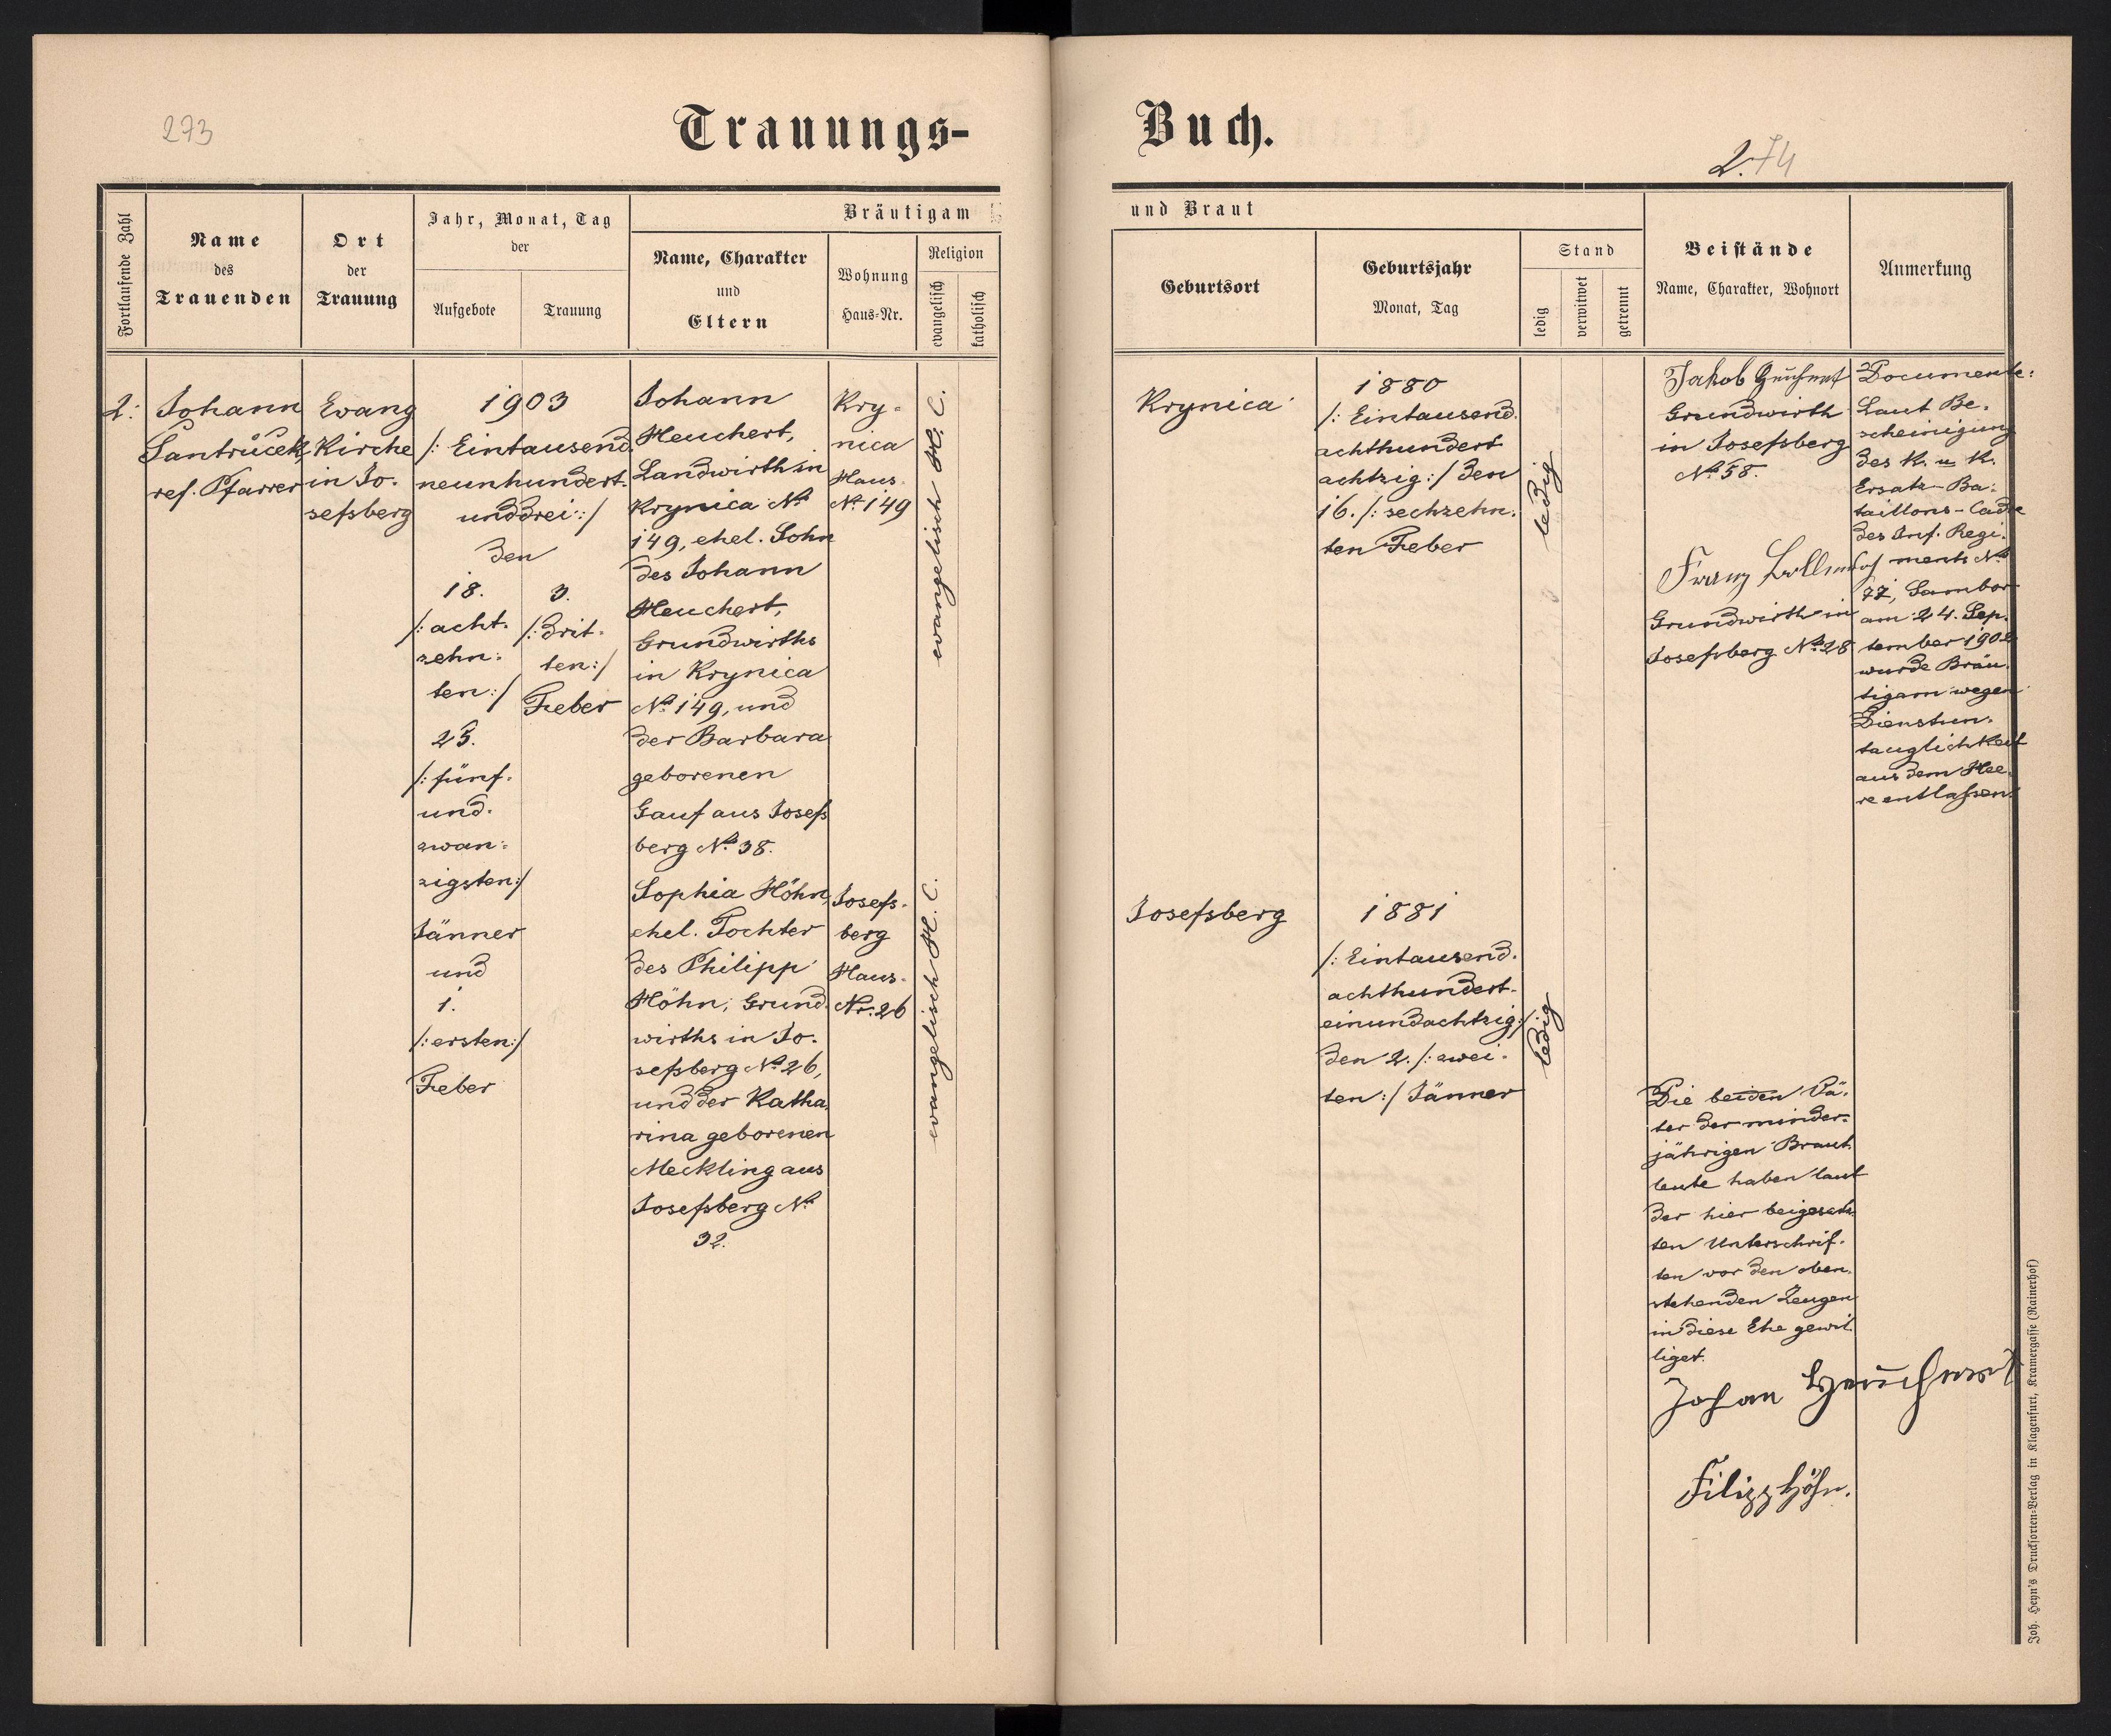 273
Trauungs-
Buch.
2.74
Fortlaufende Zahl
Name
des
Trauenden
Ort
der
Trauung
Jahr, Monat, Tag
der
Aufgebote
Trauung
Bräutigam
Name, Charakter
und
Eltern
Wohnung
Haus-Nr.
Religion
evangelisch
katholisch
und Braut
Geburtsort
Geburtsjahr
Monat, Tag
Stand
ledig
verwitwet
getrennt
Beistände
Name, Charakter, Wohnort
Anmerkung
2.
Johann
Santrůček,
ref. Pfarrer
Evang
Kirche
in Jo-
sefsberg
1903
/: Eintausend-
neunhundert-
unddrei :/
den
18.
/: acht-
zehn-
ten :/
25.
/: fünf-
und-
zwan-
zigsten :/
Jänner
und
1.
/: ersten :/
Feber
3.
/: drit-
ten :/
Feber
Johann
Heuchert,
Landwirth in
Krynica No
149, ehel. Sohn
des Johann
Heuchert,
Grundwirths
in Krynica
No 149, und
der Barbara
geborenen
Gauf aus Josefs
berg No 38.
Kry-
nica
Haus-
No 149
evangelisch H. C.
Krynica
1880
/: Eintausend-
achthundert
achtzig :/ den
16. /: sechzehn-
ten Feber
ledig
Jakob Heuchert
Grundwirth
in Josefsberg
No 58.
Franz
Grundwirth in
Josefsberg No 28
Documente:
Laut Be-
scheinigung
des K. u. K.
Ersatz-Ba-
taillons-Cadre
des Inf. Regi-
ments No
77, Sambor
am 24. Sep-
tember 1902
wurde Bräu-
tigam wegen
Dienstun-
tauglichkeit
aus dem Hee-
re entlassen.
Sophia Höhn,
ehel. Tochter
des Philipp
Höhn, Grund-
wirths in Jo-
sefsberg No 26,
und der Katha-
rina geborenen
Meckling aus
Josefsberg No
32.
Josefs-
berg
Haus-
Nr. 26
evangelisch H. C.
Josefsberg
1881
/: Eintausend-
achthundert-
einundachtzig :/
den 2. /: zwei-
ten :/ Jänner
ledig
Die beiden Vä-
ter der minder-
jährigen Braut-
leute haben laut
der hier beigesetz-
ten Unterschrif-
ten vor den oben-
stehenden Zeugen
in diese Ehe gewil-
liget.
Johan Heuchert
Filipp Höhn.
Joh. Heyn's Drucksorten-Verlag in Klagenfurt, Kramergasse (Rainerhof)